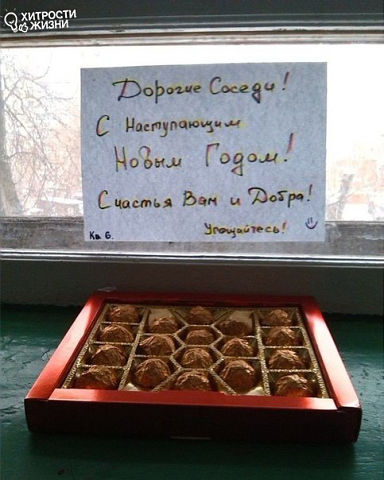 ХИТРОСТИ
ЖИЗНИ
Дорогие Соседи!
С Наступающим
Новым Годом!
Счастья Вам и Добра!
Кв 6.
Угощайтесь!